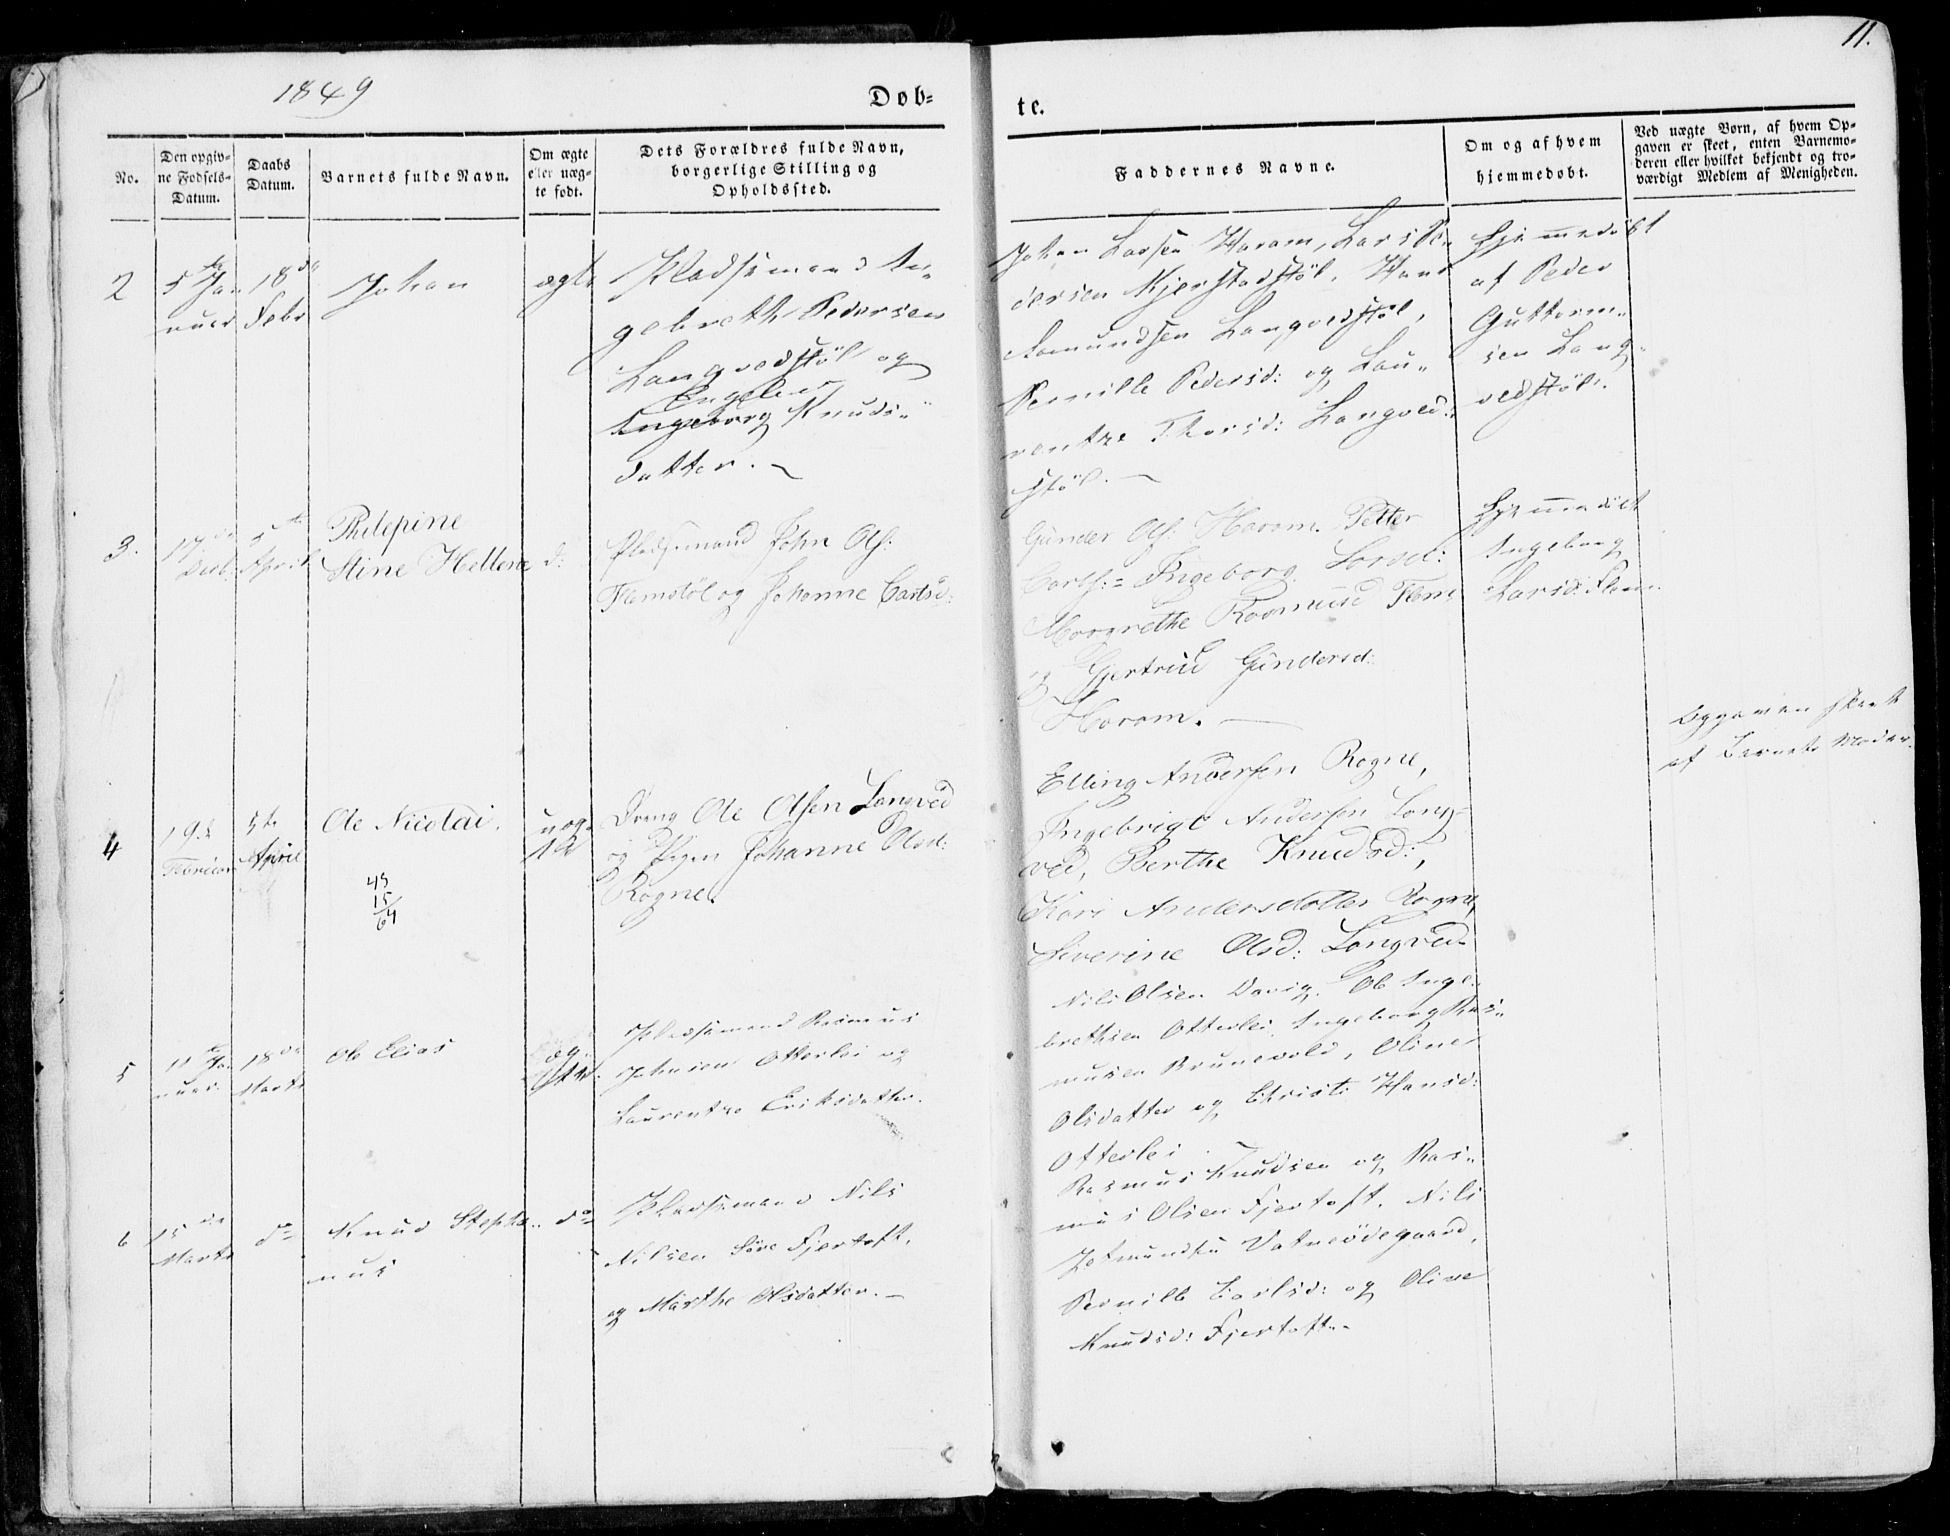 1849
Dob=
te.
11.
No.
Den opgiv=
ne Fodsels=
Datum.
Daabs
Datum.
Barnets fulde Navn.
Om ægte
eller uæg=
te født.
Dets Forældres fulde Navn,
borgerlige Stilling og
Opholdssted.
Faddernes Navne.
Om og af hvem
hjemmedøbt.
Ved uægte Børn, af hvem Op=
gaven er skeet, enten Barnemo=
deren eller hvilket bekjendt og tro=
værdigt Medlem af Menigheden.
2
5te Jan
nuar
18de
Febr
Johan
ægte
Pladsemand In=
gebreth Pedersen
Langvedstøl og
Engelev
Ingeborg Knuds=
datter. –
Johan Larsen Haram, Lars Pe=
dersen Kjerstadstøl, Hans
Aamundsen Langvedstøl,
Pernille Pedersd: og Lau=
rentze Thorsd: Langved=
støl. –
Hjemmedøbt
af Peder
Guttorm=
sen Lang=
vedstøl.
3.
17de
5te
April
Philepine
Stine Hellene
d:
Pladsemand John Ols:
Flemstøl og Johanne Carlsd:
Gunder Ols: Haram. Petter
Carls:= Ingeborg Larsd:
Margrethe Rasmusd Flem
og Gjertrud Gundersd:
Haram. –
Hjemmedøbt
Ingeborg
Larsd: Flem.
4
19de
Februar
5te
April
Ole Nicolai.
49
15
64
uæg
te
Dreng Ole Olsen Langved
og Pigen Johanne Olsd:
Rogne.
Elling Andersen Rogne,
Ingebrigt Andersen Lang=
ved, Berthe Knudsd:,
Kari Andersdatter Rogne,
Severine Olsd: Langved.
Opgaven skeet
af Barnets Moder.
5
11te Ja
nuar
18de
Marts
Ole Elias
æg=
te
Pladsemand Rasmus
Johnsen Otterlei og
Laurentze Eriksdatter.
Nils Olsen Ole Inge=
brethsen Otterlei Ingeborg Ras=
musen Brunevold, Oline
Olsdatter og Christi Hansd:
Otterlei
6
25de
Marts
do
Knud Stepha=
nus
do
Pladsemand Nils
Nilsen Søre Fjertoft,
og Marthe Olsdatter. –
Rasmus Knudsen og Ras=
mus Olsen Fjertoft, Nils
Zetmundsen Vatneødegaard,
Pernille Carlsd: og Oline
Knudsd: Fjertoft. –